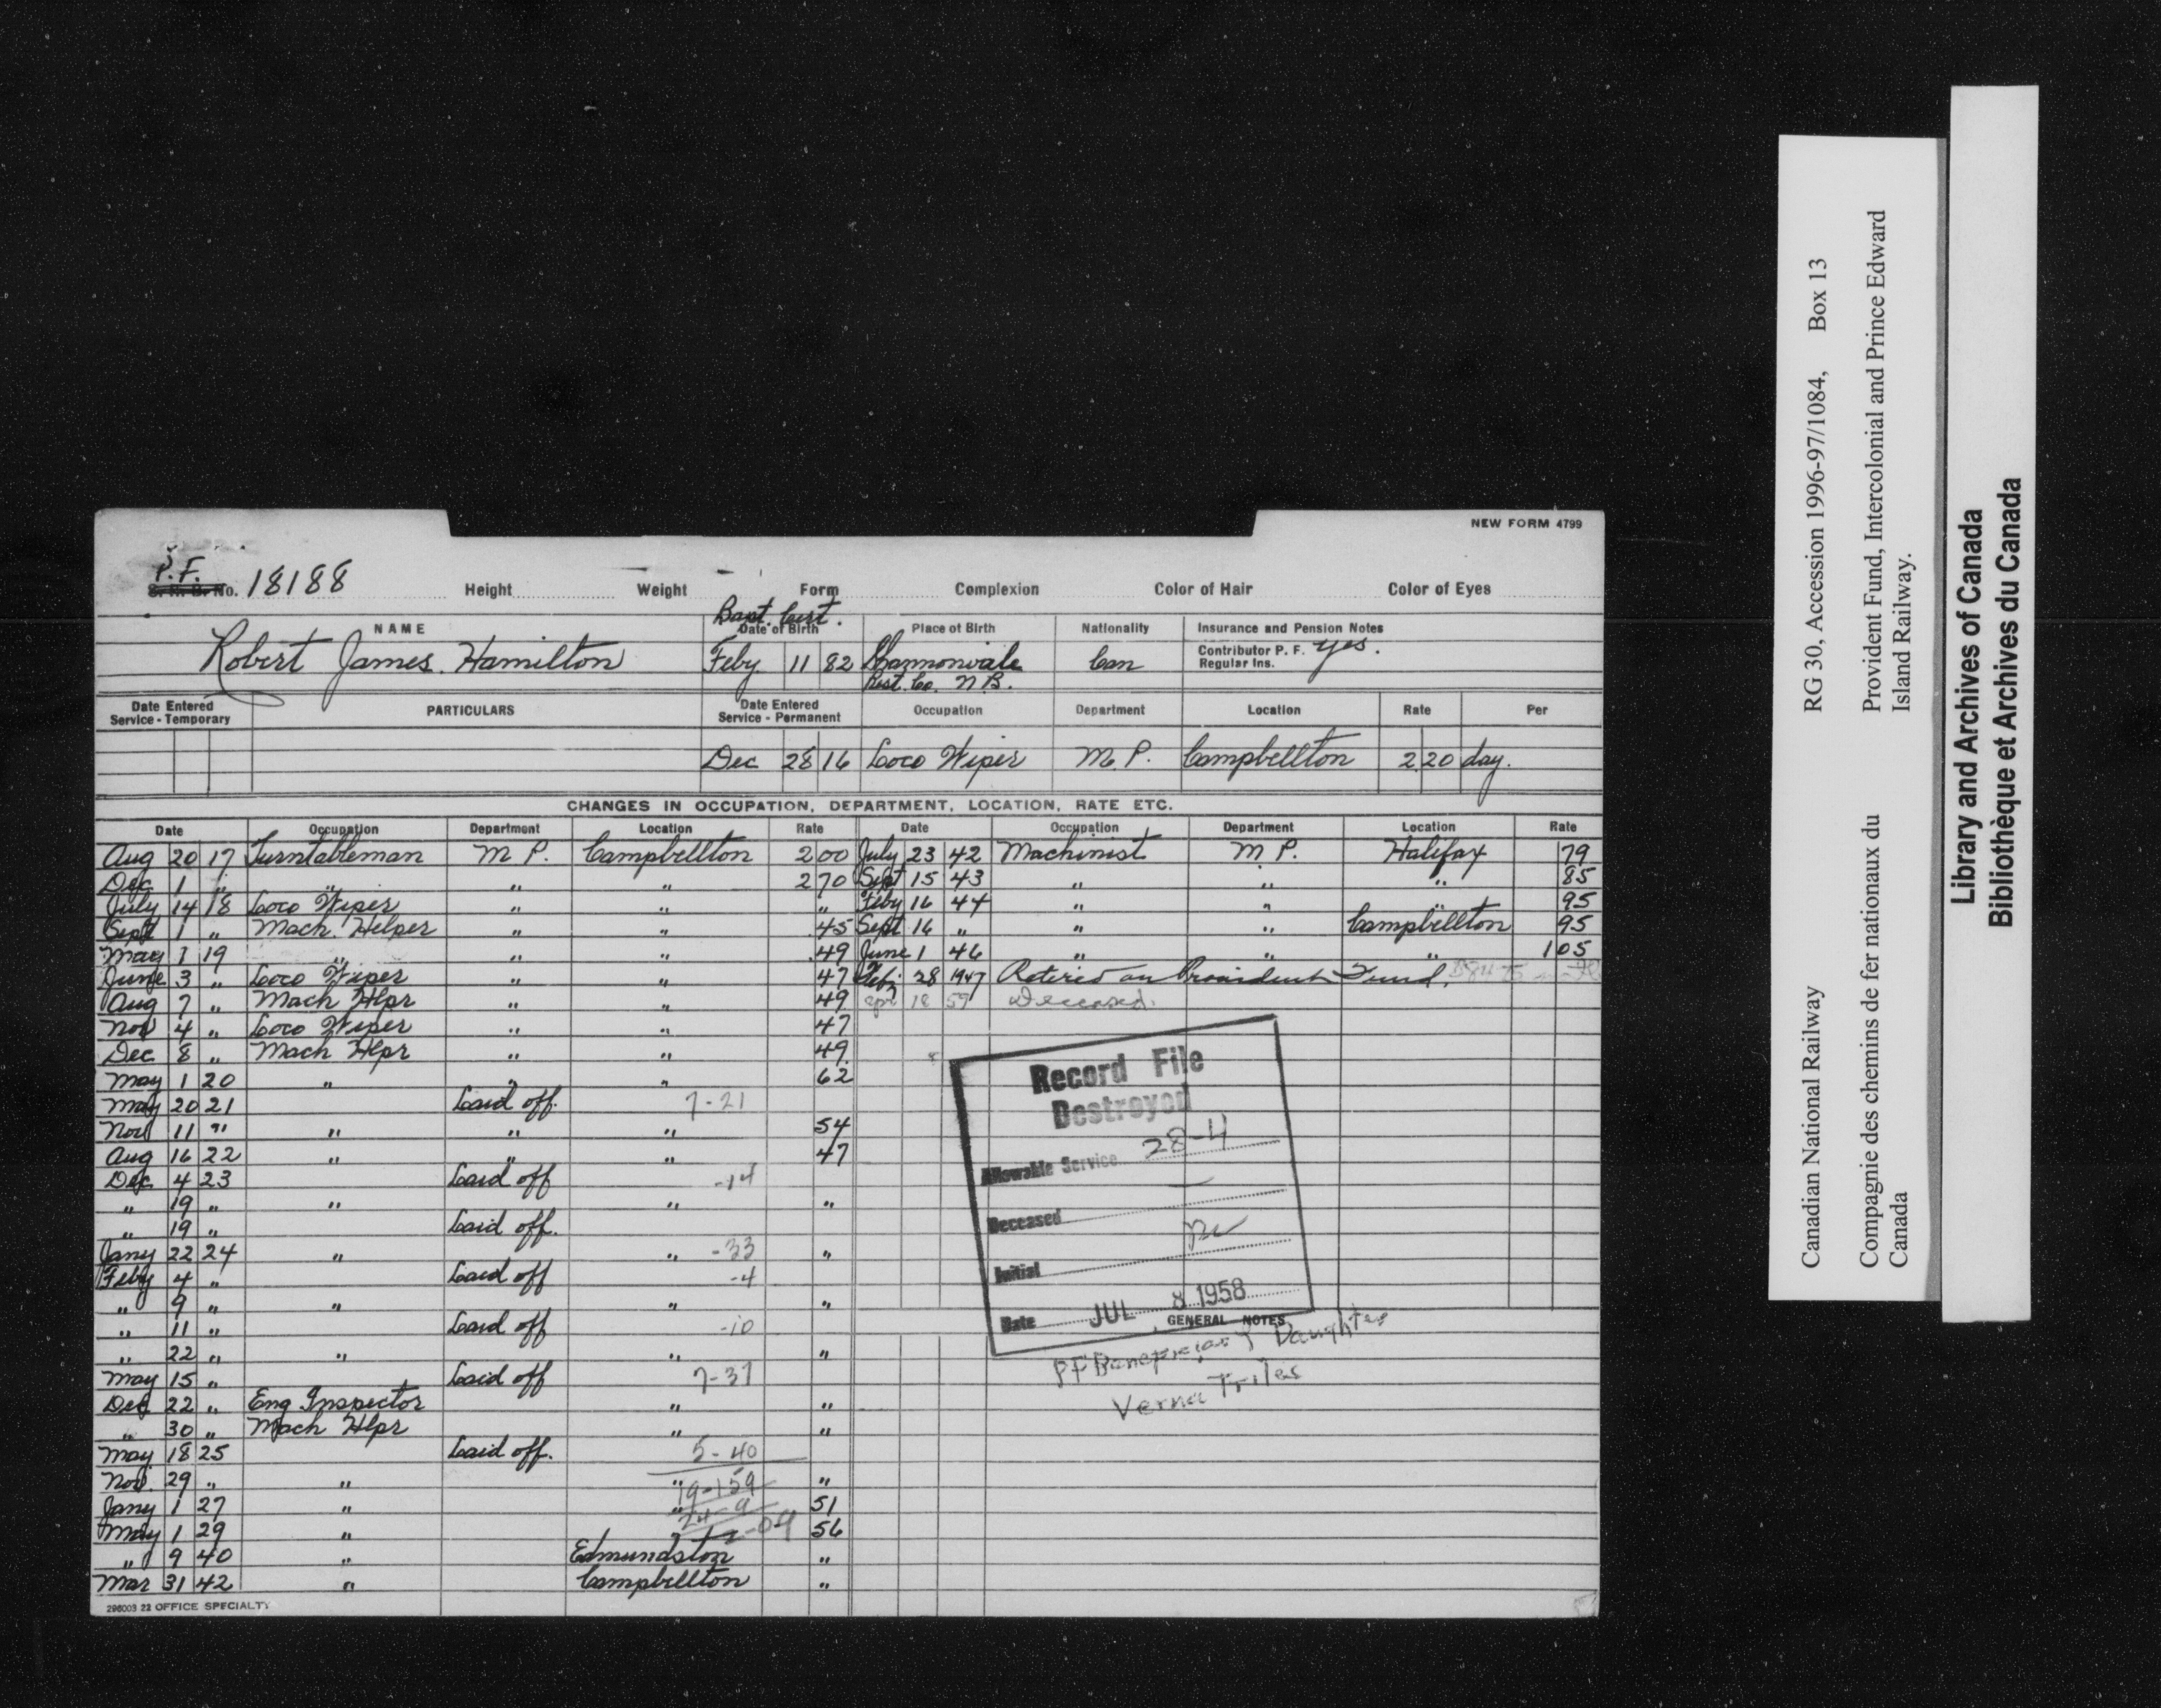 NEW FORM 4799
P.F.
S.R.B. No. 18188 Height Weight Form Complexion Color of Hair Color of Eyes
Bapt. Cert.
NAME Date of Birth Place of Birth Nationality Insurance and Pension Notes
Robert James Hamilton Feby 11 82 Shannonvale Can Contributor P. F. yes.
Regular Ins.
Rest. Co. N.B.
Date Entered Service - Temporary PARTICULARS Date Entered Service - Permanent Occupation Department Location Rate Per
Dec 28 16 Loco Wiper M.P. Campbellton 2 20 day.
CHANGES IN OCCUPATION, DEPARTMENT, LOCATION, RATE ETC.
Date Occupation Department Location Rate Date Occupation Department Location Rate
Aug 20 17 Turntableman M P. Campbellton 2 00 July 23 42 Machinist M.P. Halifax 79
Dec 1 " " " " 2 70 Sept 15 43 " " " 85
July 14 18 Loco Wiper " " " Feby 16 44 " " " 95
Sept 1 " Mach. Helper " " .45 Sept 16 " " " Campbellton 95
May 1 19 " " " .49 June 1 46 " " " 1 05
June 3 " Loco Wiper " " 47 Feb. 28 1947 Retired on Provident Fund.
Aug 7 " Mach Hlpr " " 49 apr 18 59 Deceased.
Nov 4 " Loco Wiper " " 47
Dec 8 " Mach Hlpr " " 49.
May 1 20 " " " 62
May 20 21 Laid off. 7-21
Nov 11 " " " " 54
Aug 16 22 " " " 47
Dec 4 23 Laid off -14
" 19 " " " "
" 19 " Laid off.
Jany 22 24 " " -33 "
Feby 4 " Laid off -4
" 9 " " " "
" 11 " Laid off -10
" 22 " " " "
May 15 " Laid off 7-37
Dec 22 " Eng Inspector " "
" 30 " Mach Hlpr " "
May 18 25 Laid off. 5-40
Nov. 29 " " " 19-159 "
Jany 1 27 " " 24-9 51
May 1 29 " 56
" 9 40 " Edmundston "
Mar 31 42 " Campbellton "
296003 22 OFFICE SPECIALTY
Record File
Destroyed
Allowable Service 28-4
Deceased
Initial
Date JUL 8 1958
GENERAL NOTES
Daughter
Verna
Canadian National Railway RG 30, Accession 1996-97/1084, Box 13
Compagnie des chemins de fer nationaux du Canada Provident Fund, Intercolonial and Prince Edward Island Railway.
Library and Archives of Canada
Bibliothèque et Archives du Canada